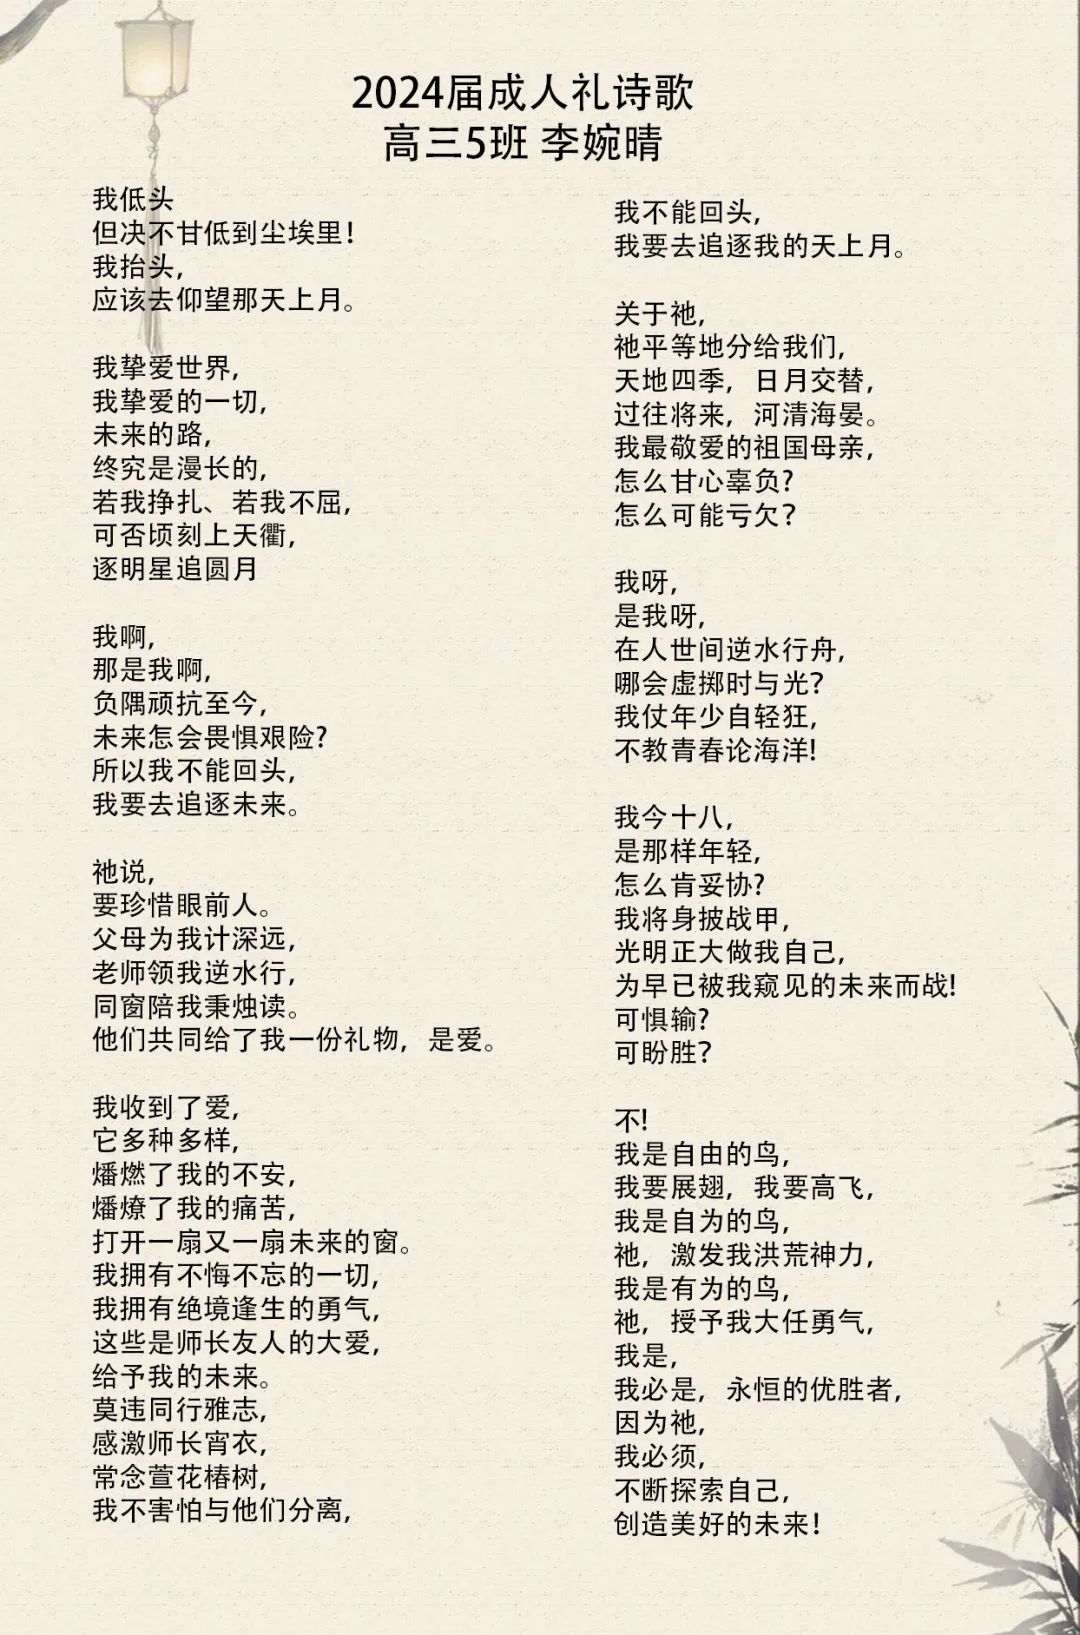 2024届成人礼诗歌
高三5班 李婉晴
我低头
但决不甘低到尘埃里！
我抬头，
应该去仰望那天上月。
我挚爱世界，
我挚爱的一切，
未来的路，
终究是漫长的，
若我挣扎、若我不屈，
可否顷刻上天衢，
逐明星追圆月
我啊，
那是我啊，
负隅顽抗至今，
未来怎会畏惧艰险？
所以我不能回头，
我要去追逐未来。
祂说，
要珍惜眼前人。
父母为我计深远，
老师领我逆水行，
同窗陪我秉烛读。
他们共同给了我一份礼物，是爱。
我收到了爱，
它多种多样，
燔燃了我的不安，
燔燎了我的痛苦，
打开一扇又一扇未来的窗。
我拥有不悔不忘的一切，
我拥有绝境逢生的勇气，
这些是师长友人的大爱，
给予我的未来。
莫违同行雅志，
感激师长宵衣，
常念萱花椿树，
我不害怕与他们分离，
我不能回头，
我要去追逐我的天上月。
关于祂，
祂平等地分给我们，
天地四季，日月交替，
过往将来，河清海晏。
我最敬爱的祖国母亲，
怎么甘心辜负？
怎么可能亏欠？
我呀，
是我呀，
在人世间逆水行舟，
哪会虚掷时与光？
我仗年少自轻狂，
不教青春论海洋！
我今十八，
是那样年轻，
怎么肯妥协？
我将身披战甲，
光明正大做我自己，
为早已被我窥见的未来而战！
可惧输？
可盼胜？
不！
我是自由的鸟，
我要展翅，我要高飞，
我是自为的鸟，
祂，激发我洪荒神力，
我是有为的鸟，
祂，授予我大任勇气，
我是，
我必是，永恒的优胜者，
因为祂，
我必须，
不断探索自己，
创造美好的未来！